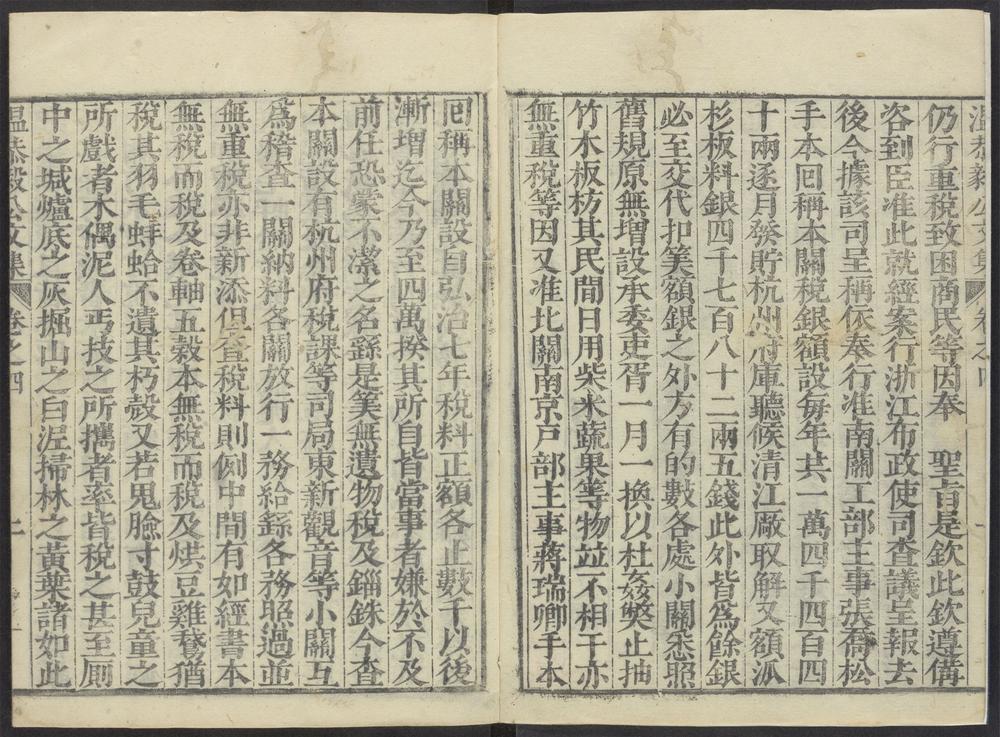 溫恭毅公文集 卷之四
仍行重稅致困商民等因奉　聖旨是欽此欽遵備
咨到臣准此就經案行浙江布政使司查議呈報去
後今據該司呈稱依奉行准南關工部主事張喬松
手本回稱本關稅銀額設每年共一萬四千四百四
十兩逐月發貯杭州府庫聽候清江厰取解又額派
杉板料銀四千七百八十二兩五錢此外皆爲餘銀
必至交代扣筭額銀之外方有的數各處小關悉照
舊規原無增設承委吏胥一月一換以杜姦獘止抽
竹木板枋其民間日用柴米蔬果等物竝不相干亦
無重稅等因又准北關南京戶部主事蔣瑞卿手本
回稱本關設自弘治七年稅料正額各止數千以後
漸增迄今乃至四萬揆其所自皆當事者嫌於不及
前任恐蒙不潔之名繇是筭無遺物稅及錙銖今查
本關設有杭州府稅課等司局東新觀音等小關互
爲稽查一關納料各關放行一務給繇各務照過並
無重稅亦非新添但查稅料則例中間有如經書本
無稅而稅及卷軸五穀本無稅而稅及烘豆雞鵞猶
稅其羽毛蚌蛤不遺其朽殼又若鬼臉寸鼓兒童之
所戲者木偶泥人丐技之所攜者率皆稅之甚至厠
中之堿爐底之灰掘山之白泥掃林之黃葉諸如此
溫恭毅公文集 卷之四 二